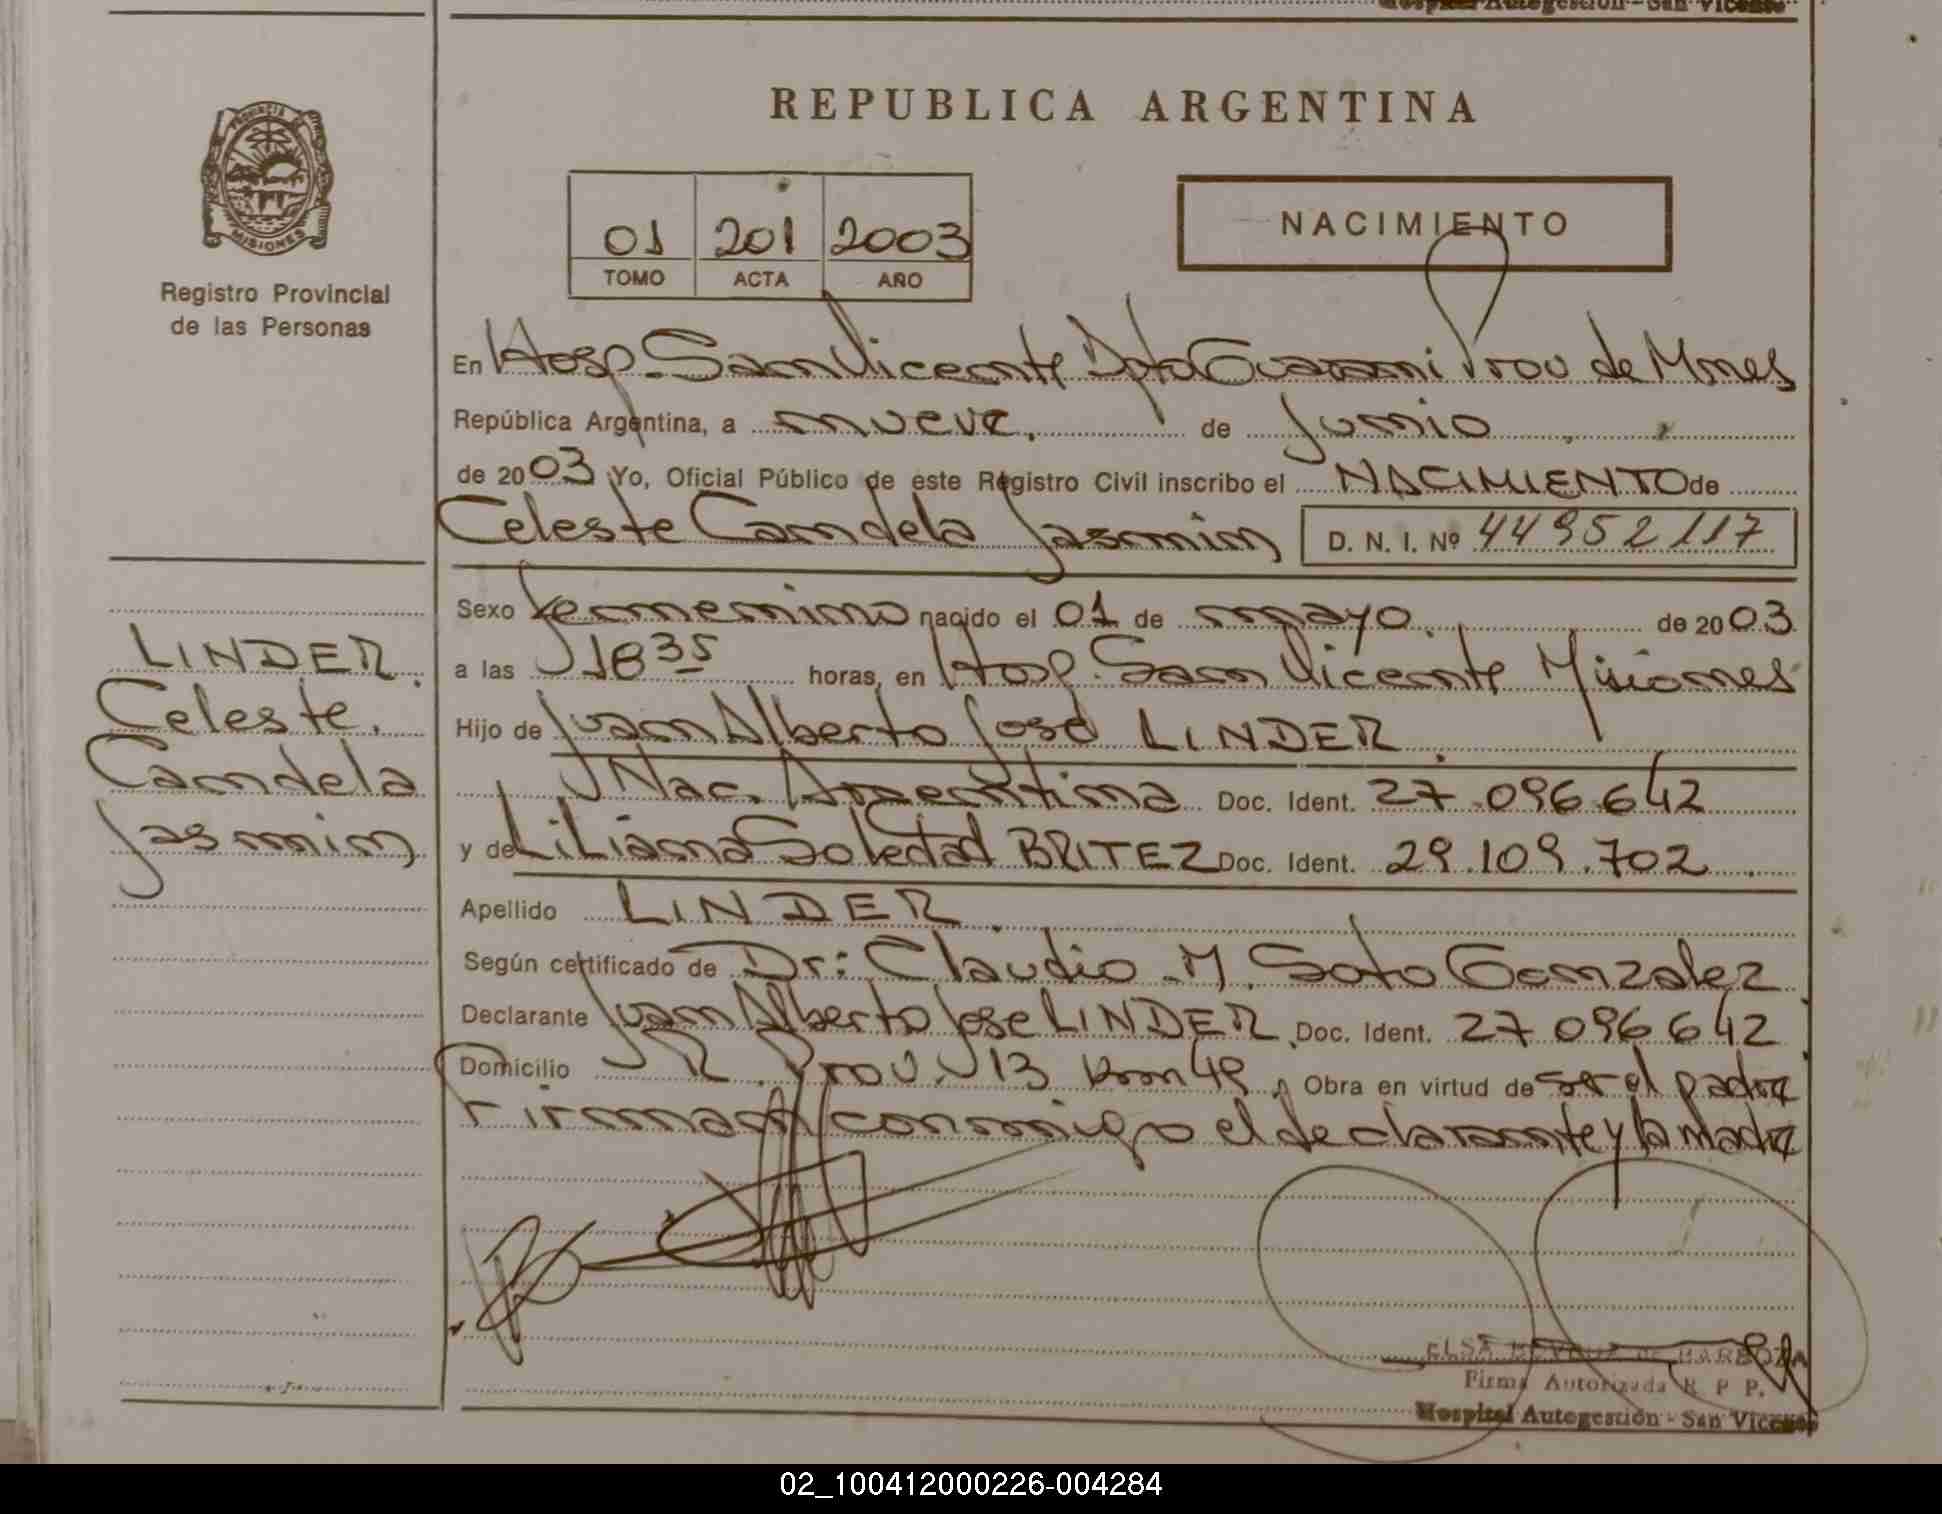 Hospital Autogestión - San Vicente
PROVINCIA DE
MISIONES
Registro Provincial
de las Personas
REPUBLICA ARGENTINA
01 201 2003
TOMO ACTA AÑO
NACIMIENTO
En Hosp. San Vicente Dpto Guarani Prov de Mnes
República Argentina, a nueve. de Junio
de 2003 Yo, Oficial Público de este Registro Civil inscribo el NACIMIENTO de
Celeste Candela Jasmin D. N. I. Nº 44952117
Sexo femenino nacido el 01 de mayo. de 2003
a las 18 35 horas, en Hosp. San Vicente Misiones
Hijo de Juan Alberto José LINDER
Nac. Argentina Doc. Ident. 27.096.642
y de Liliana Soledad BRITEZ Doc. Ident. 29.109.702
Apellido LINDER
Según certificado de Dr: Claudio M. Soto Gonzalez
Declarante Juan Alberto Jose LINDER Doc. Ident. 27 096 642
Domicilio R. Prov. 13 km 49 Obra en virtud de ser el padre
Firman conmigo el declarante y la madre
LINDER
Celeste.
Candela
Jasmin
ELSA DE BARBOZA
Firma Autorizada R P P.
Hospital Autogestión - San Vicente
02_100412000226-004284